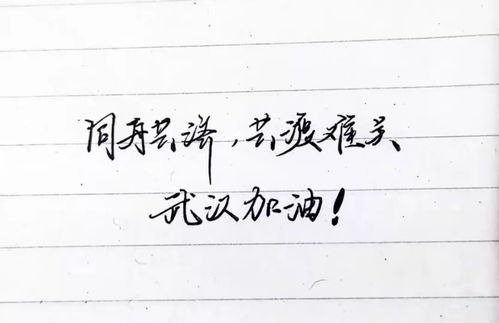 同舟共济，共渡难关
武汉加油！